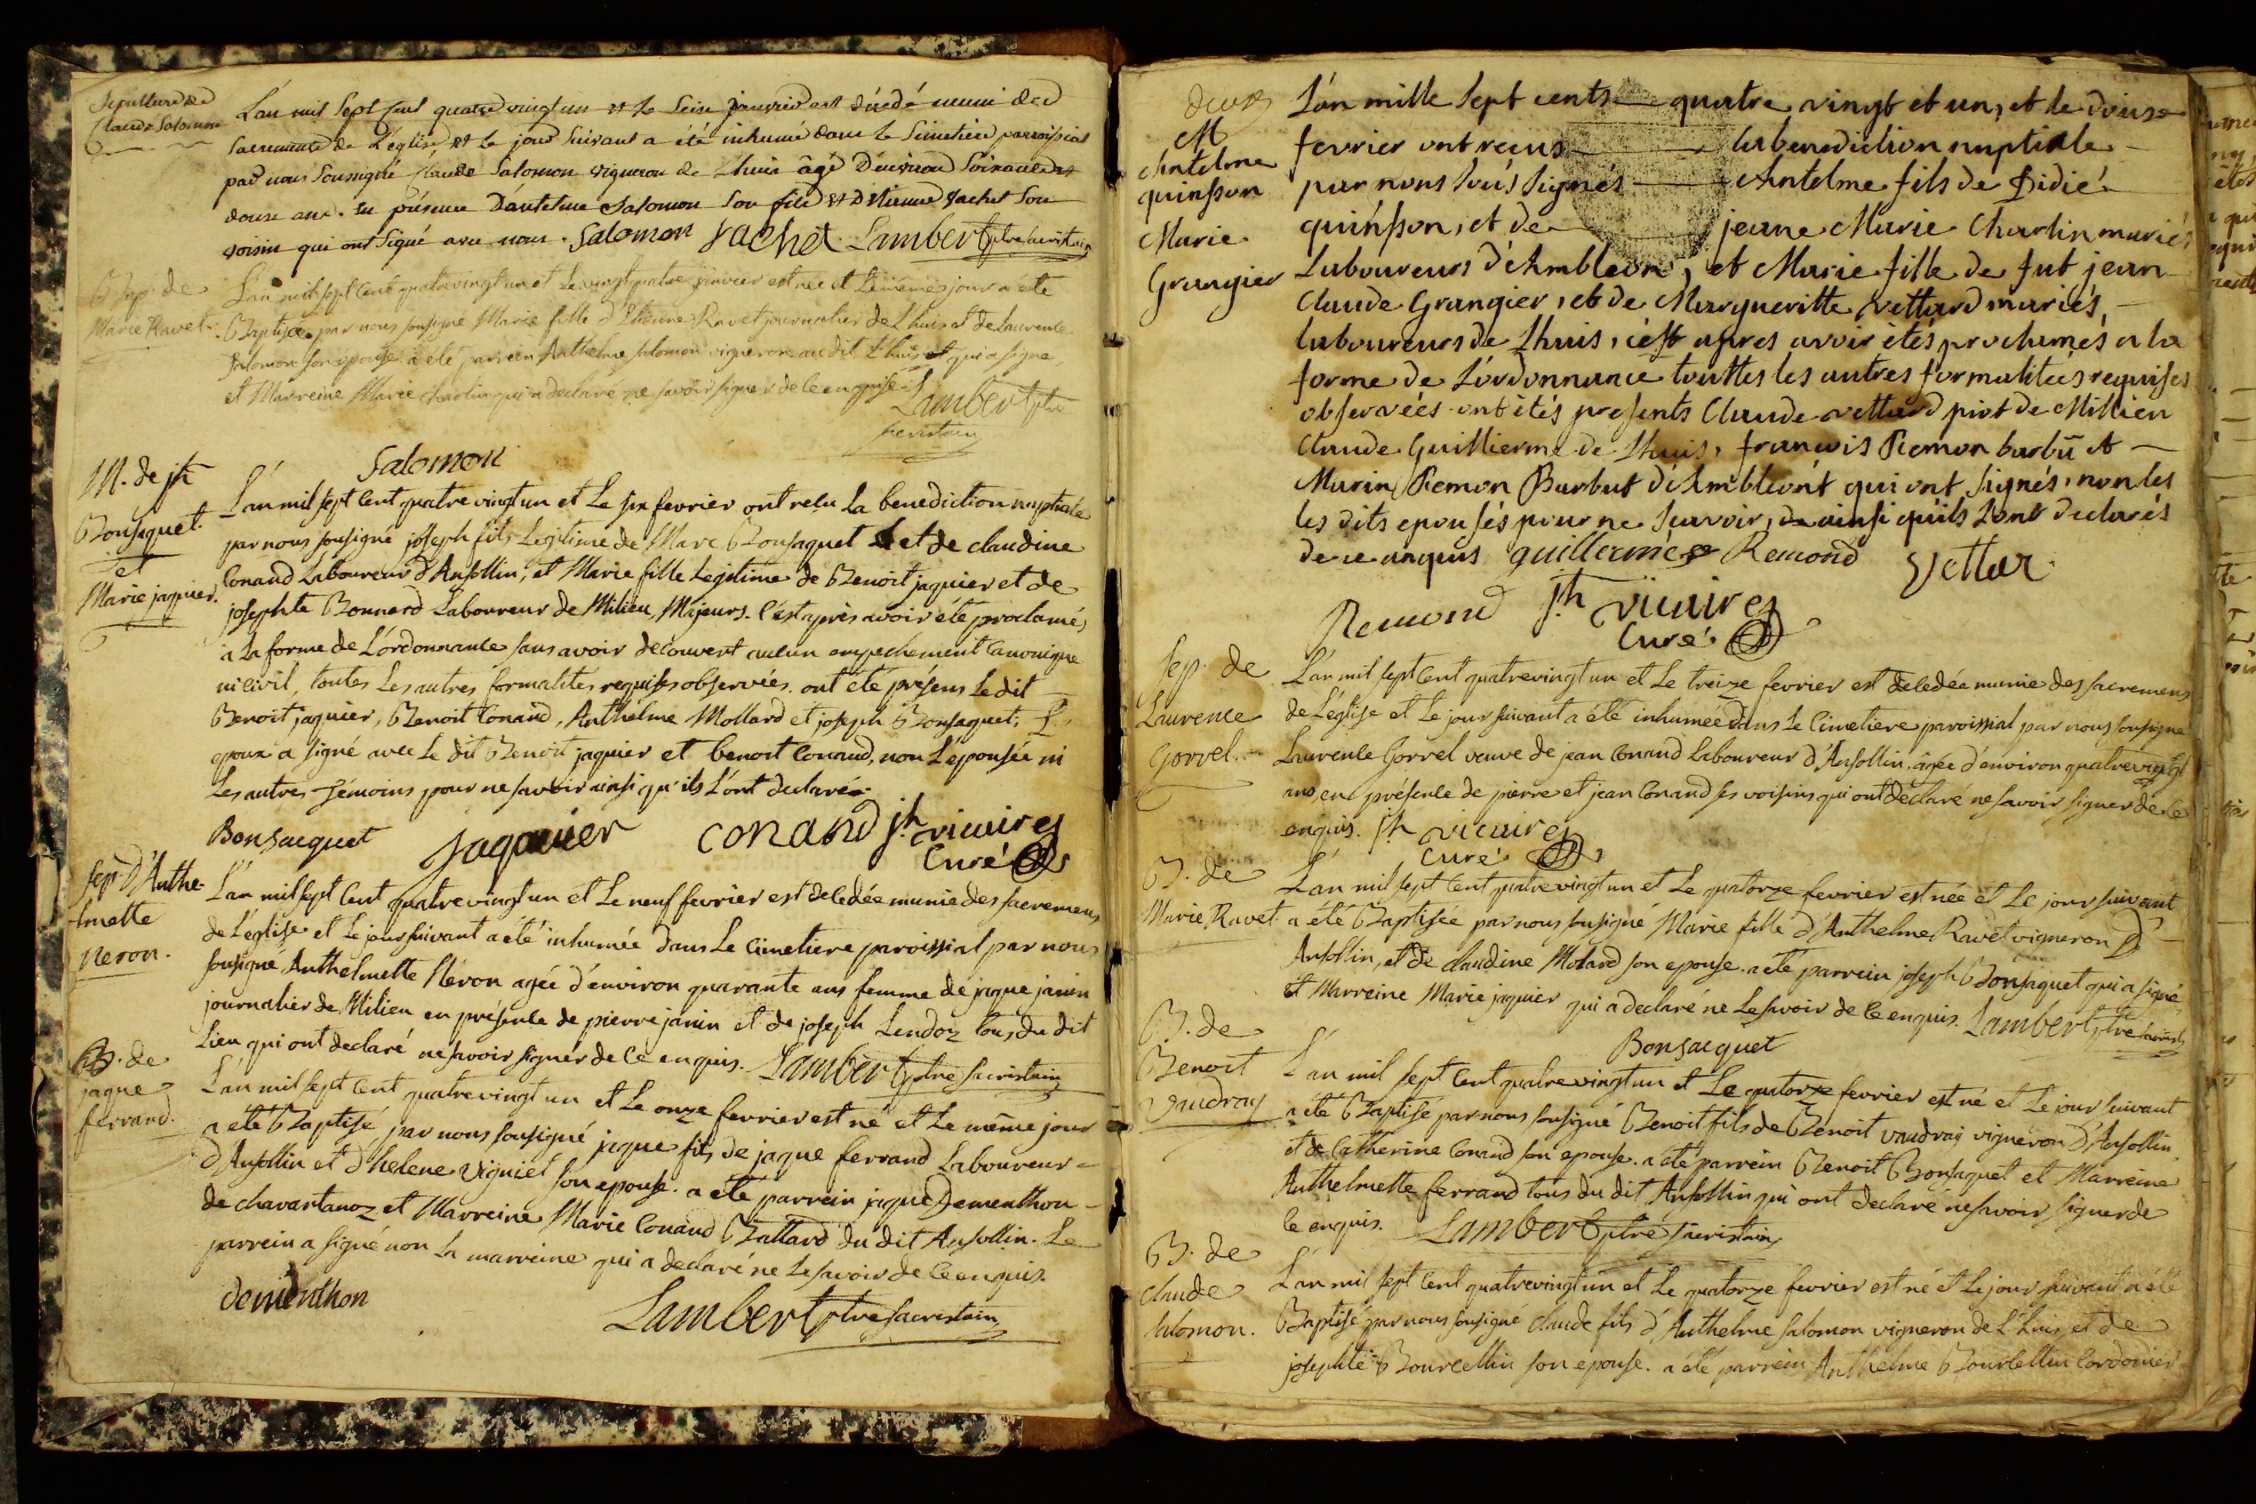 Sepulture de
Claude Salomon
L'an mil sept cent quatre vingt un et le seize janvier est décédé muni des
sacrements de L'église et le jour suivant a été inhumé dans le simetière parroissial
par nous soussigné claude Salomon vigneron de Lhuis âgé D'environ soixante et
douze ans. en présence D'antelme Salomon son fils et D'etienne Vachet son
voisin qui ont signé avec nous. Salomon Vachet Lambert ptre sacristain
Bap. de
Marie Ravet.
L'an mil sept cent quatre vingt un et Le vingt quatre janvier est née et Le même jour a été
Baptisée par nous sousigné Marie fille d'Etienne Ravet journalier de L'huis et de Laurence
Salomon son epouse a été parrein Anthelme Salomon vigneron au dit L'huis et qui a signé,
et Marreine Marie qui a declaré ne savoir signer de ce enquise. Lambert ptre
sacristain
Salomon
M. de jh
Bonsaquet.
et
Marie jaquier.
L'an mil sept Cent quatre vingt un et Le six fevrier ont reçu La benediction nuptiale
par nous sousigné joseph fils Legitime de Marc Bonsaquet et de claudine
Conand Laboureur d'Ansollin, et Marie fille Legitime de Benoit jaquier et de
josephte Bonnard Laboureur de Milieu, Majeurs. C'est après avoir été proclamés
a La forme de L'ordonnance sans avoir decouvert aucun empechement canonique
ni civil, toutes Les autres formalités requises observées. ont été présens Le dit
Benoit jaquier, Benoit Conand, Anthelme Mollard et joseph Bonsaquet. L'
epoux a signé avec Le dit Benoit jaquier et benoit Conand, non L'épousée ni
Les autres Témoins pour ne savoir ainsi qu'ils L'ont declaré.
Bonsacquet jaquier conand jh vicaire
Curé
sep. d'Anthe-
lmette
Neron.
L'an mil sept Cent quatre vingt un et Le neuf fevrier est decedée munie des sacremens
de L'église et Le jour suivant a été inhumée dans Le Cimetiere paroissial par nous
sousigné Anthelmette Néron agée d'environ quarante ans femme de jaque janin
journalier de Milieu en présence de pierre janin et de joseph Lendoz tous du dit
Lieu qui ont declaré ne savoir signer de Ce enquis. Lambert ptre sacristain
B. de
jaque
ferrand.
L'an mil sept Cent quatre vingt un et Le onze fevrier est né et Le même jour
a été Baptisé par nous sousigné jaque fils de jaque ferrand Laboureur
d'Ansollin et d'helene Viguiet son epouse. a été parrein jaque Dementhon
de chavantanoz et Marreine Marie Conand Ballard du dit Ansollin. Le
parrein a signé non La marreine qui a declaré ne Le savoir de Ce enquis.
dementhon
Lambert ptre sacristain
M
Antelme
quinsson
Marie
Grangier
L'an mille sept cents quatre vingt et un, et le douze
fevrier ont reçus la benediction nuptiale
par nous sous signés Antelme fils de Didié
quinsson, et de jeane Marie Charlin mariés
Laboureurs d'Ambleon, et Marie fille de fut jean
Claude Grangier, et de Margueritte Vettard mariés,
laboureurs de Lhuis, c'est apres avoir étés proclamés a la
forme de L'ordonnance touttes les autres formalitées requises
observées ont étés presents Claude Vettard piot de Millieu
Claude Guillierme de Lhuis, francois Remon barbu et
Marin Remon Barbut d'Ambleont qui ont signés, non les
les dits epousés pour ne scavoir, ainsi qu'ils l'ont declarés
de ce anquis guillermé Remond Vettar
Remond jh vicaire
Curé
sep. de
Laurence
Gorrel.
L'an mil sept Cent quatre vingt un et Le treize fevrier est decedée munie des sacremens
de L'église et Le jour suivant a été inhumée dans Le Cimetiere paroissial par nous sousigné
Laurence Gorrel veuve de jean Conand Laboureur d'Ansollin, agée d'environ quatre vingt
ans, en présence de pierre et jean Conand ses voisins qui ont declaré ne savoir signer de Ce
enquis. jh vicaire
Curé
B. de
Marie Ravet
L'an mil sept Cent quatre vingt un et Le quatorze fevrier est née et Le jour suivant
a été Baptisée par nous sousigné Marie fille d'Anthelme Ravet vigneron D'
Ansollin, et de claudine Molard son epouse. a été parrein joseph Bonsaquet qui a signé,
et Marreine Marie jaquier qui a declaré ne Le savoir de Ce enquis. Lambert ptre sacrist
Bonsacquet
B. de
Benoit
Vaudray
L'an mil sept Cent quatre vingt un et Le quatorze fevrier est né et Le jour suivant
a été Baptisé par nous sousigné Benoit fils de Benoit vaudray vigneron d'Ansollin
et de Catherine Conand son epouse. a été parrein Benoit Bonsaquet et Marreine
Anthelmette ferrand tous du dit Ansollin qui ont declaré ne savoir signer de
Ce enquis. Lambert ptre sacristain
B. de
claude
Salomon.
L'an mil sept Cent quatre vingt un et Le quatorze fevrier est né et Le jour suivant a été
Baptisé par nous sousigné claude fils d'Anthelme Salomon vigneron de L'huis, et de
josephte Bourcellin son epouse. a été parrein Anthelme Bourcellin Cordonier